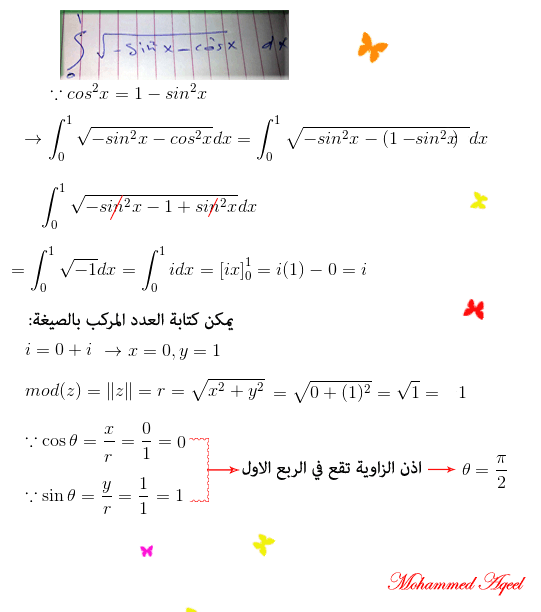 ∫₀¹ √(-sin²x - cos²x) dx
∵ cos²x = 1 − sin²x
→ ∫₀¹ √(−sin²x − cos²x)dx = ∫₀¹ √(−sin²x − (1 −sin²x)) dx
∫₀¹ √(−sin²x − 1 + sin²x)dx
= ∫₀¹ √(−1)dx = ∫₀¹ idx = [ix]₀¹ = i(1) − 0 = i
يمكن كتابة العدد المركب بالصيغة:
i = 0 + i → x = 0, y = 1
mod(z) = ||z|| = r = √(x² + y²) = √(0 + (1)²) = √1 = 1
∵ cos θ = x/r = 0/1 = 0
اذن الزاوية تقع في الربع الاول → θ = π/2
∵ sin θ = y/r = 1/1 = 1
Mohammed Aqeel